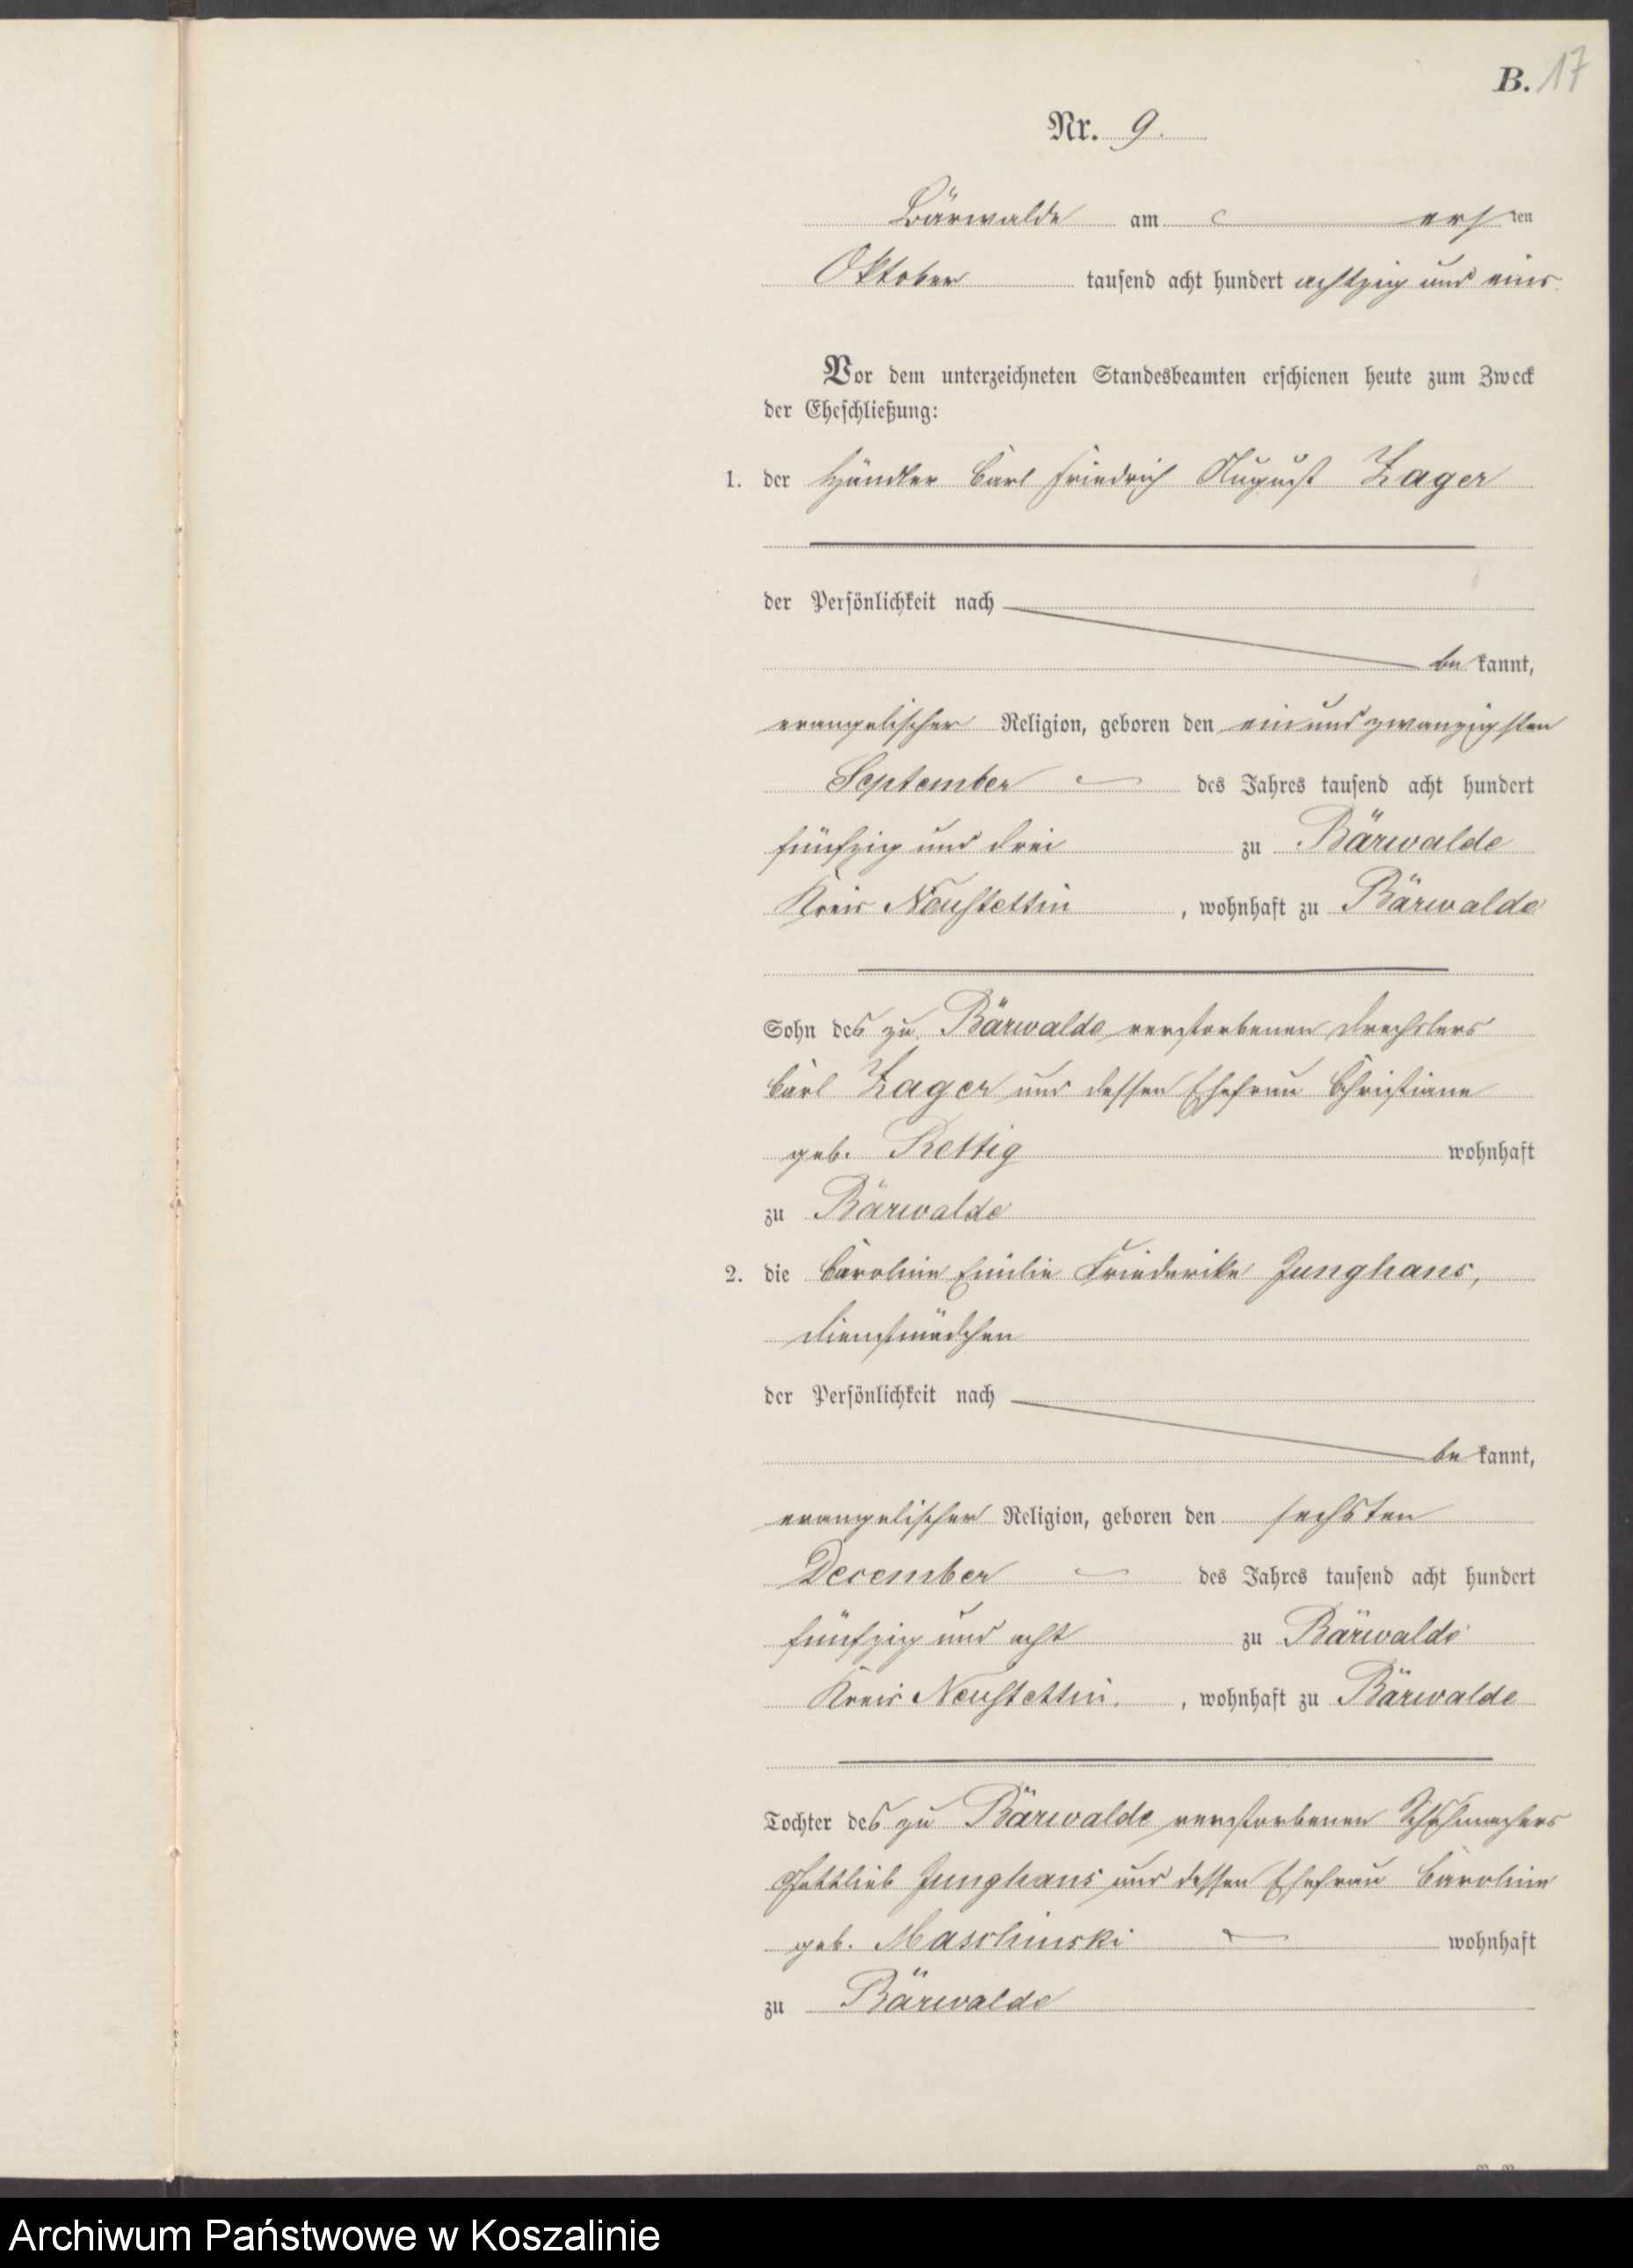 B. 17
Nr. 9.
Bärwalde am ersten
Oktober tausend acht hundert achtzig und eins.
Vor dem unterzeichneten Standesbeamten erschienen heute zum Zweck
der Eheschließung:
1. der Händler Carl Friedrich August Zager
der Persönlichkeit nach
be kannt,
evangelischer Religion, geboren den ein und zwanzigsten
September des Jahres tausend acht hundert
fünfzig und drei zu Bärwalde
Kreis Neustettin, wohnhaft zu Bärwalde
Sohn des zu Bärwalde verstorbenen Drechslers
Carl Zager und dessen Ehefrau Christiane
geb. Rettig wohnhaft
zu Bärwalde
2. die Caroline Emilie Friederike Junghans,
Dienstmädchen
der Persönlichkeit nach
be kannt,
evangelischer Religion, geboren den sechsten
December des Jahres tausend acht hundert
fünfzig und acht zu Bärwalde
Kreis Neustettin. , wohnhaft zu Bärwalde
Tochter des zu Bärwalde verstorbenen Schuhmachers
Gottlieb Junghans und dessen Ehefrau Caroline
geb. Maschinski wohnhaft
zu Bärwalde
Archiwum Państwowe w Koszalinie